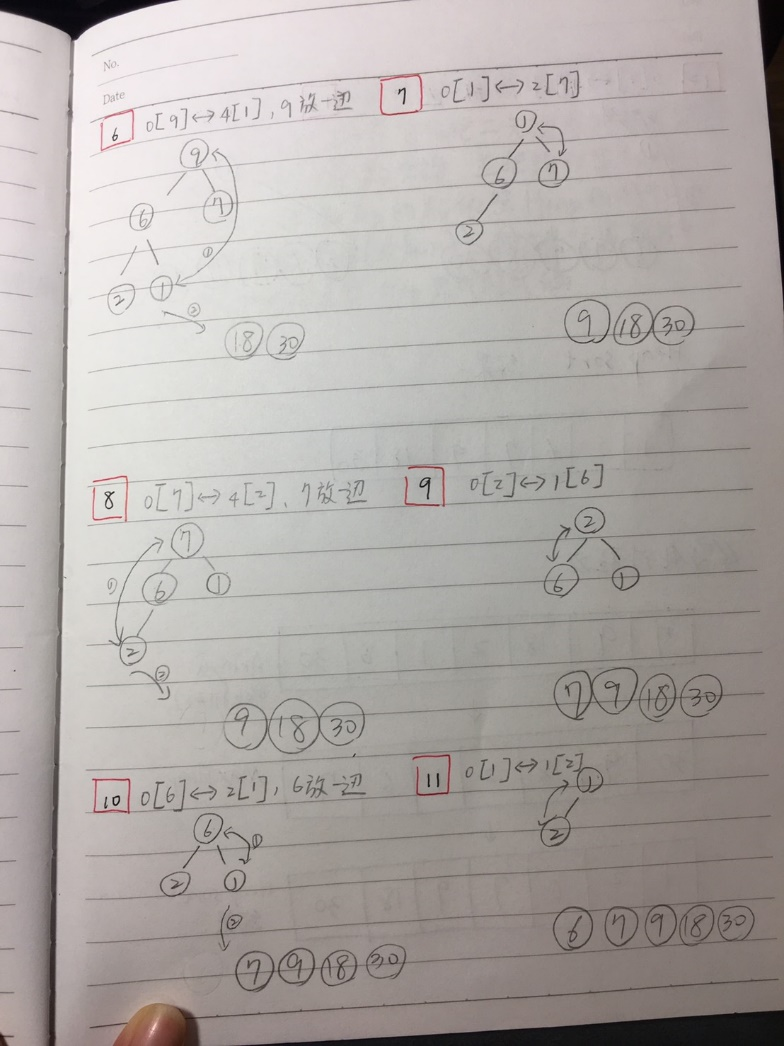 No.
Date
6 0[9]↔4[1], 9放一边
9
6 7
①
2 1
②
18 30
7 0[1]↔2[7]
1
6 7
2
9 18 30
8 0[7]↔4[2], 7放一边
7
①
6 1
2
②
9 18 30
9 0[2]↔1[6]
2
6 1
7 9 18 30
10 0[6]↔2[1], 6放一边
6
①
2 1
②
7 9 18 30
11 0[1]↔1[2]
1
2
6 7 9 18 30